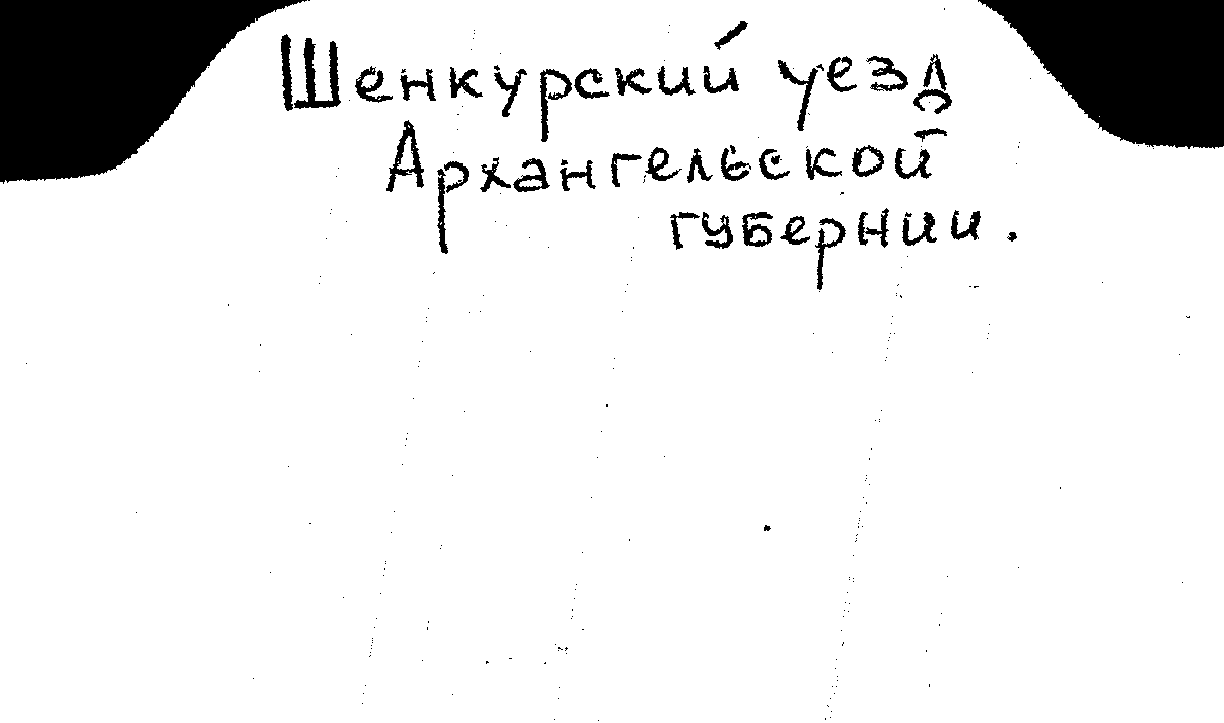 Шенкурский уезд
Архангельской
губернии.